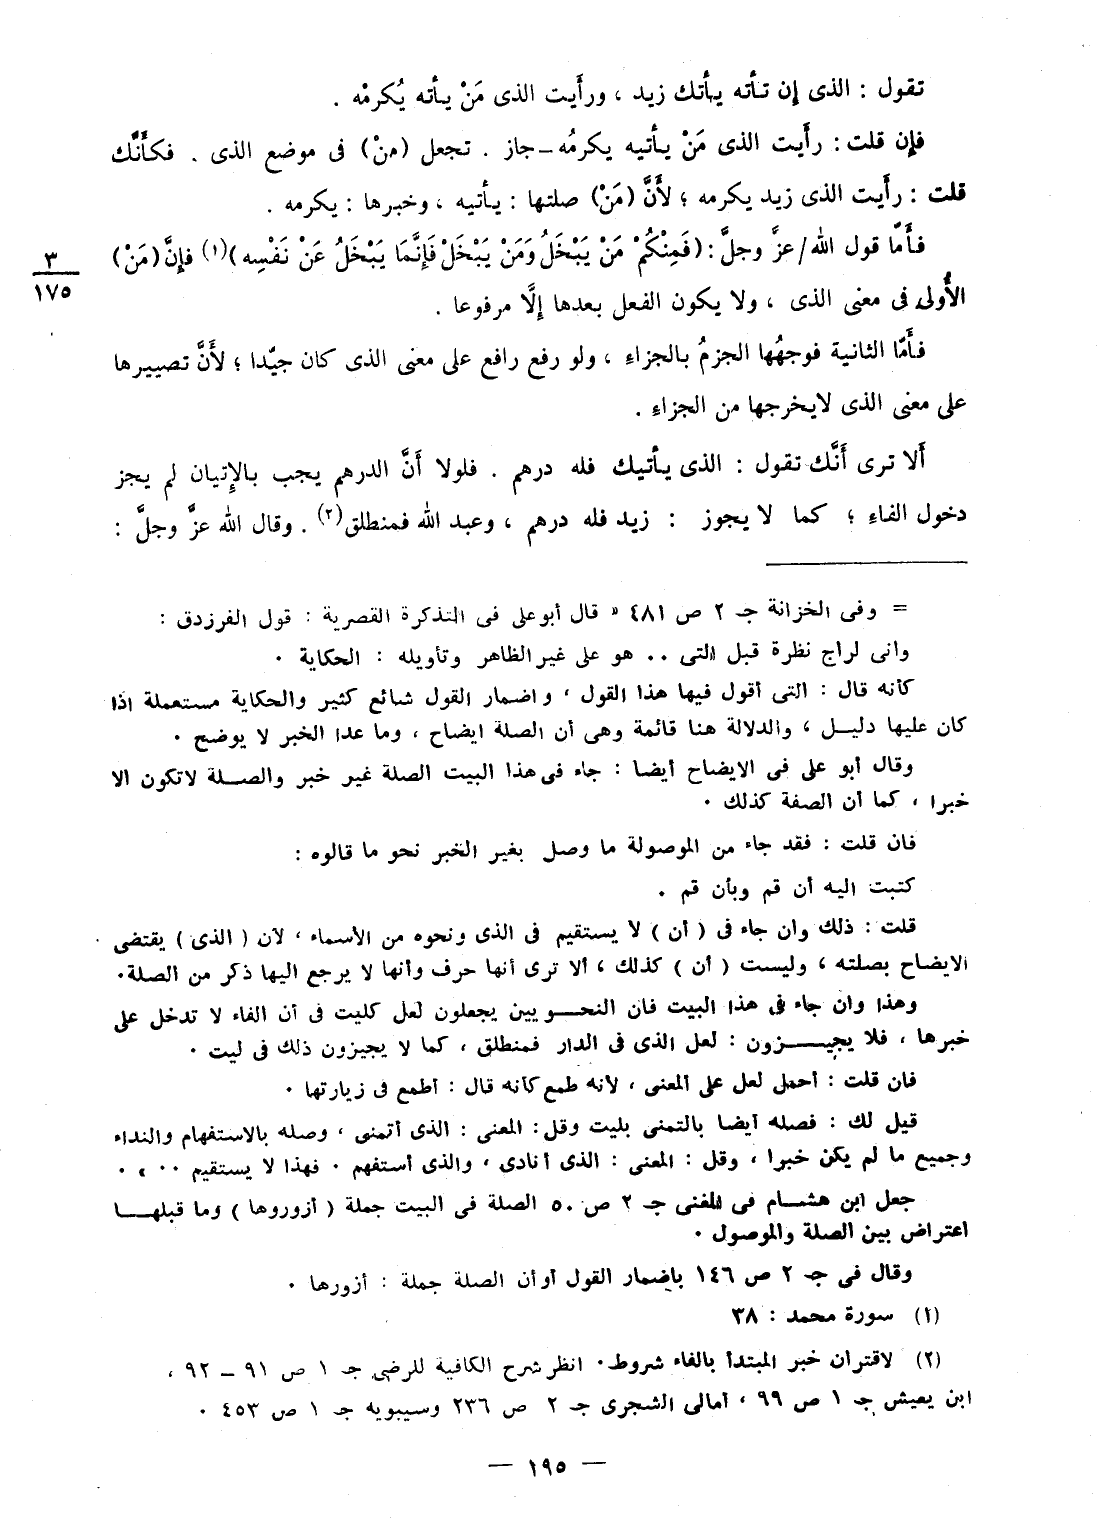 تقول : الذى إن تأته يأتك زيد ، ورأَيت الذى مَنْ يأته يُكرمْه .
فإن قلت : رأَيت الذى مَنْ يأتيه يكرمُه – جاز . تجعل (منْ) فى موضع الذى . فكأَنَّك
قلت : رأَيت الذى زيد يكرمه ؛ لأَنَّ (مَنْ) صلتها : يأتيه ، وخبرها : يكرمه .
فأَمّا قول الله/عزَّ وجلَّ : (فَمِنْكُمْ مَنْ يَبْخَلُ وَمَنْ يَبْخَلْ فَإِنَّمَا يَبْخَلُ عَنْ نَفْسِه)(١) فإنَّ (مَنْ)
٣
١٧٥
الأُولى فى معنى الذى ، ولا يكون الفعل بعدها إلَّا مرفوعا .
فأَمّا الثانية فوجهُها الجزمُ بالجزاءِ ، ولو رفع رافع على معنى الذى كان جيّدا ؛ لأَنَّ تصييرها
على معنى الذى لايخرجها من الجزاءِ .
أَلا ترى أَنَّك تقول : الذى يأتيك فله درهم . فلولا أَنَّ الدرهم يجب بالإتيان لم يجز
دخول الفاءِ ؛ كما لا يجوز : زيد فله درهم ، وعبد الله فمنطلق(٢) . وقال الله عزَّ وجلَّ :
= وفى الخزانة جـ ٢ ص ٤٨١ « قال أبو على فى التذكرة القصرية : قول الفرزدق :
وانى لراج نظرة قبل التى .. هو على غير الظاهر وتأويله : الحكاية .
كأنه قال : التى أقول فيها هذا القول ، واضمار القول شائع كثير والحكاية مستعملة اذا
كان عليها دليل ، والدلالة هنا قائمة وهى أن الصلة ايضاح ، وما عدا الخبر لا يوضح .
وقال أبو على فى الايضاح أيضا : جاء فى هذا البيت الصلة غير خبر والصلة لاتكون الا
خبرا ، كما أن الصفة كذلك .
فان قلت : فقد جاء من الموصولة ما وصل بغير الخبر نحو ما قالوه :
كتبت اليه أن قم وبأن قم .
قلت : ذلك وان جاء فى ( أن ) لا يستقيم فى الذى ونحوه من الأسماء ، لأن ( الذى ) يقتضى
الايضاح بصلته ، وليست ( أن ) كذلك ، ألا ترى أنها حرف وأنها لا يرجع اليها ذكر من الصلة .
وهذا وان جاء فى هذا البيت فان النحويين يجعلون لعل كليت فى أن الفاء لا تدخل على
خبرها ، فلا يجيزون : لعل الذى فى الدار فمنطلق ، كما لا يجيزون ذلك فى ليت .
فان قلت : أحمل لعل على المعنى ، لأنه طمع كأنه قال : أطمع فى زيارتها .
قيل لك : فصله أيضا بالتمنى بليت وقل : المعنى : الذى أتمنى ، وصله بالاستفهام والنداء
وجميع ما لم يكن خبرا ، وقل : المعنى : الذى أنادى ، والذى أستفهم . فهذا لا يستقيم .. » .
جعل ابن هشام فى المغنى جـ ٢ ص ٥٠ الصلة فى البيت جملة ( أزوروها ) وما قبلها
اعتراض بين الصلة والموصول .
وقال فى جـ ٢ ص ١٤٦ باضمار القول أو أن الصلة جملة : أزورها .
(١) سورة محمد : ٣٨
(٢) لاقتران خبر المبتدأ بالفاء شروط . انظر شرح الكافية للرضى جـ ١ ص ٩١ – ٩٢ ،
ابن يعيش جـ ١ ص ٩٩ ، أمالى الشجرى جـ ٢ ص ٢٣٦ وسيبويه جـ ١ ص ٤٥٣ .
— ١٩٥ —